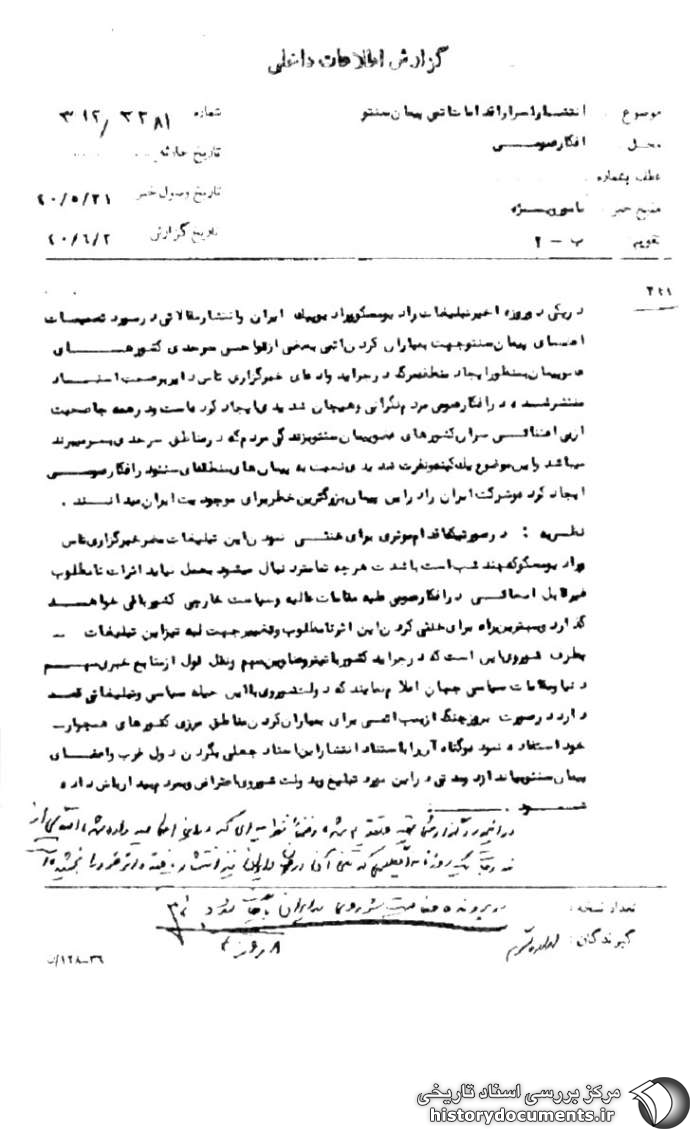 گزارش اطلاعات داخلی
موضوع : انتشار اسرار اقدامات اتمی پیمان سنتو
شماره ۳۱۲/۳۲۸۱
محل : افکار عمومی
تاریخ حادثه
عطف بشماره
منبع خبر : مامور ویژه
تاریخ وصول خبر ۴۰/۵/۳۱
تقویم ب – ۲
تاریخ گزارش ۴۰/۶/۲
۳۲۱
در یکی دو روزه اخیر تبلیغات رادیو مسکو و رادیو پیک ایران و انتشار مقالاتی در مورد تصمیمات
اعضای پیمان سنتو جهت بمباران کردن اتمی بعضی از نواحی سرحدی کشورهای
عضو پیمان بمنظور ایجاد منطقه مرگ در جراید و رادیو های خبرگزاری تاس دایر بر صحت اسناد
منتشر شده ، در افکار عمومی مردم نگرانی و هیجان شدیدی ایجاد کرده است و در همه جا صحبت
از بی اعتنائی سران کشورهای عضو پیمان سنتو بزندگی مردم که در مناطق سرحدی بسر میبرند
میباشد و این موضوع یک کینه و نفرت شدیدی نسبت به پیمان های منطقه ای سنتو در افکار عمومی
ایجاد کرده و شرکت ایران را در این پیمان بزرگترین خطر برای موجودیت ایران میدانند .
نظریه : در صورتیکه اقدام موثری برای خنثی نمودن این تبلیغات مضر خبرگزاری تاس
و رادیو مسکو که چند شب است با شدت هر چه تمامتر دنبال میشود بعمل نیاید اثرات نامطلوب
غیر قابل امحائی در افکار عمومی علیه مقامات عالیه و سیاست خارجی کشور باقی خواهد
گذارد و بهترین راه برای خنثی کردن این اثر نامطلوب و تغییر جهت لبه تیز این تبلیغات –
بطرف شوروی این است که در جراید کشور با تیتر و عناوین مهم و نقل قول از منابع خبری مهم
دنیا و مقامات سیاسی جهان اعلام نمایند که دولت شوروی با این حیله سیاسی و تبلیغاتی قصد
دارد در صورت بروز جنگ از بمب اتمی برای بمباران کردن مناطق مرزی کشورهای همجوار –
خود استفاده نموده و گناه آن را با استناد انتشار این اسناد جعلی بگردن دول غرب و اعضای
پیمان سنتو بیاندازد و مدتی در این مورد تبلیغ و بدولت شوروی اعتراض و بمردم بیداریاش داده
شود .
در پرونده فعالیت شوروی در ایران
تعداد نسخه :
گیرندگان : اداره سوم
۳۶–۱۲۸/ت
مرکز بررسی اسناد تاریخی
historydocuments.ir